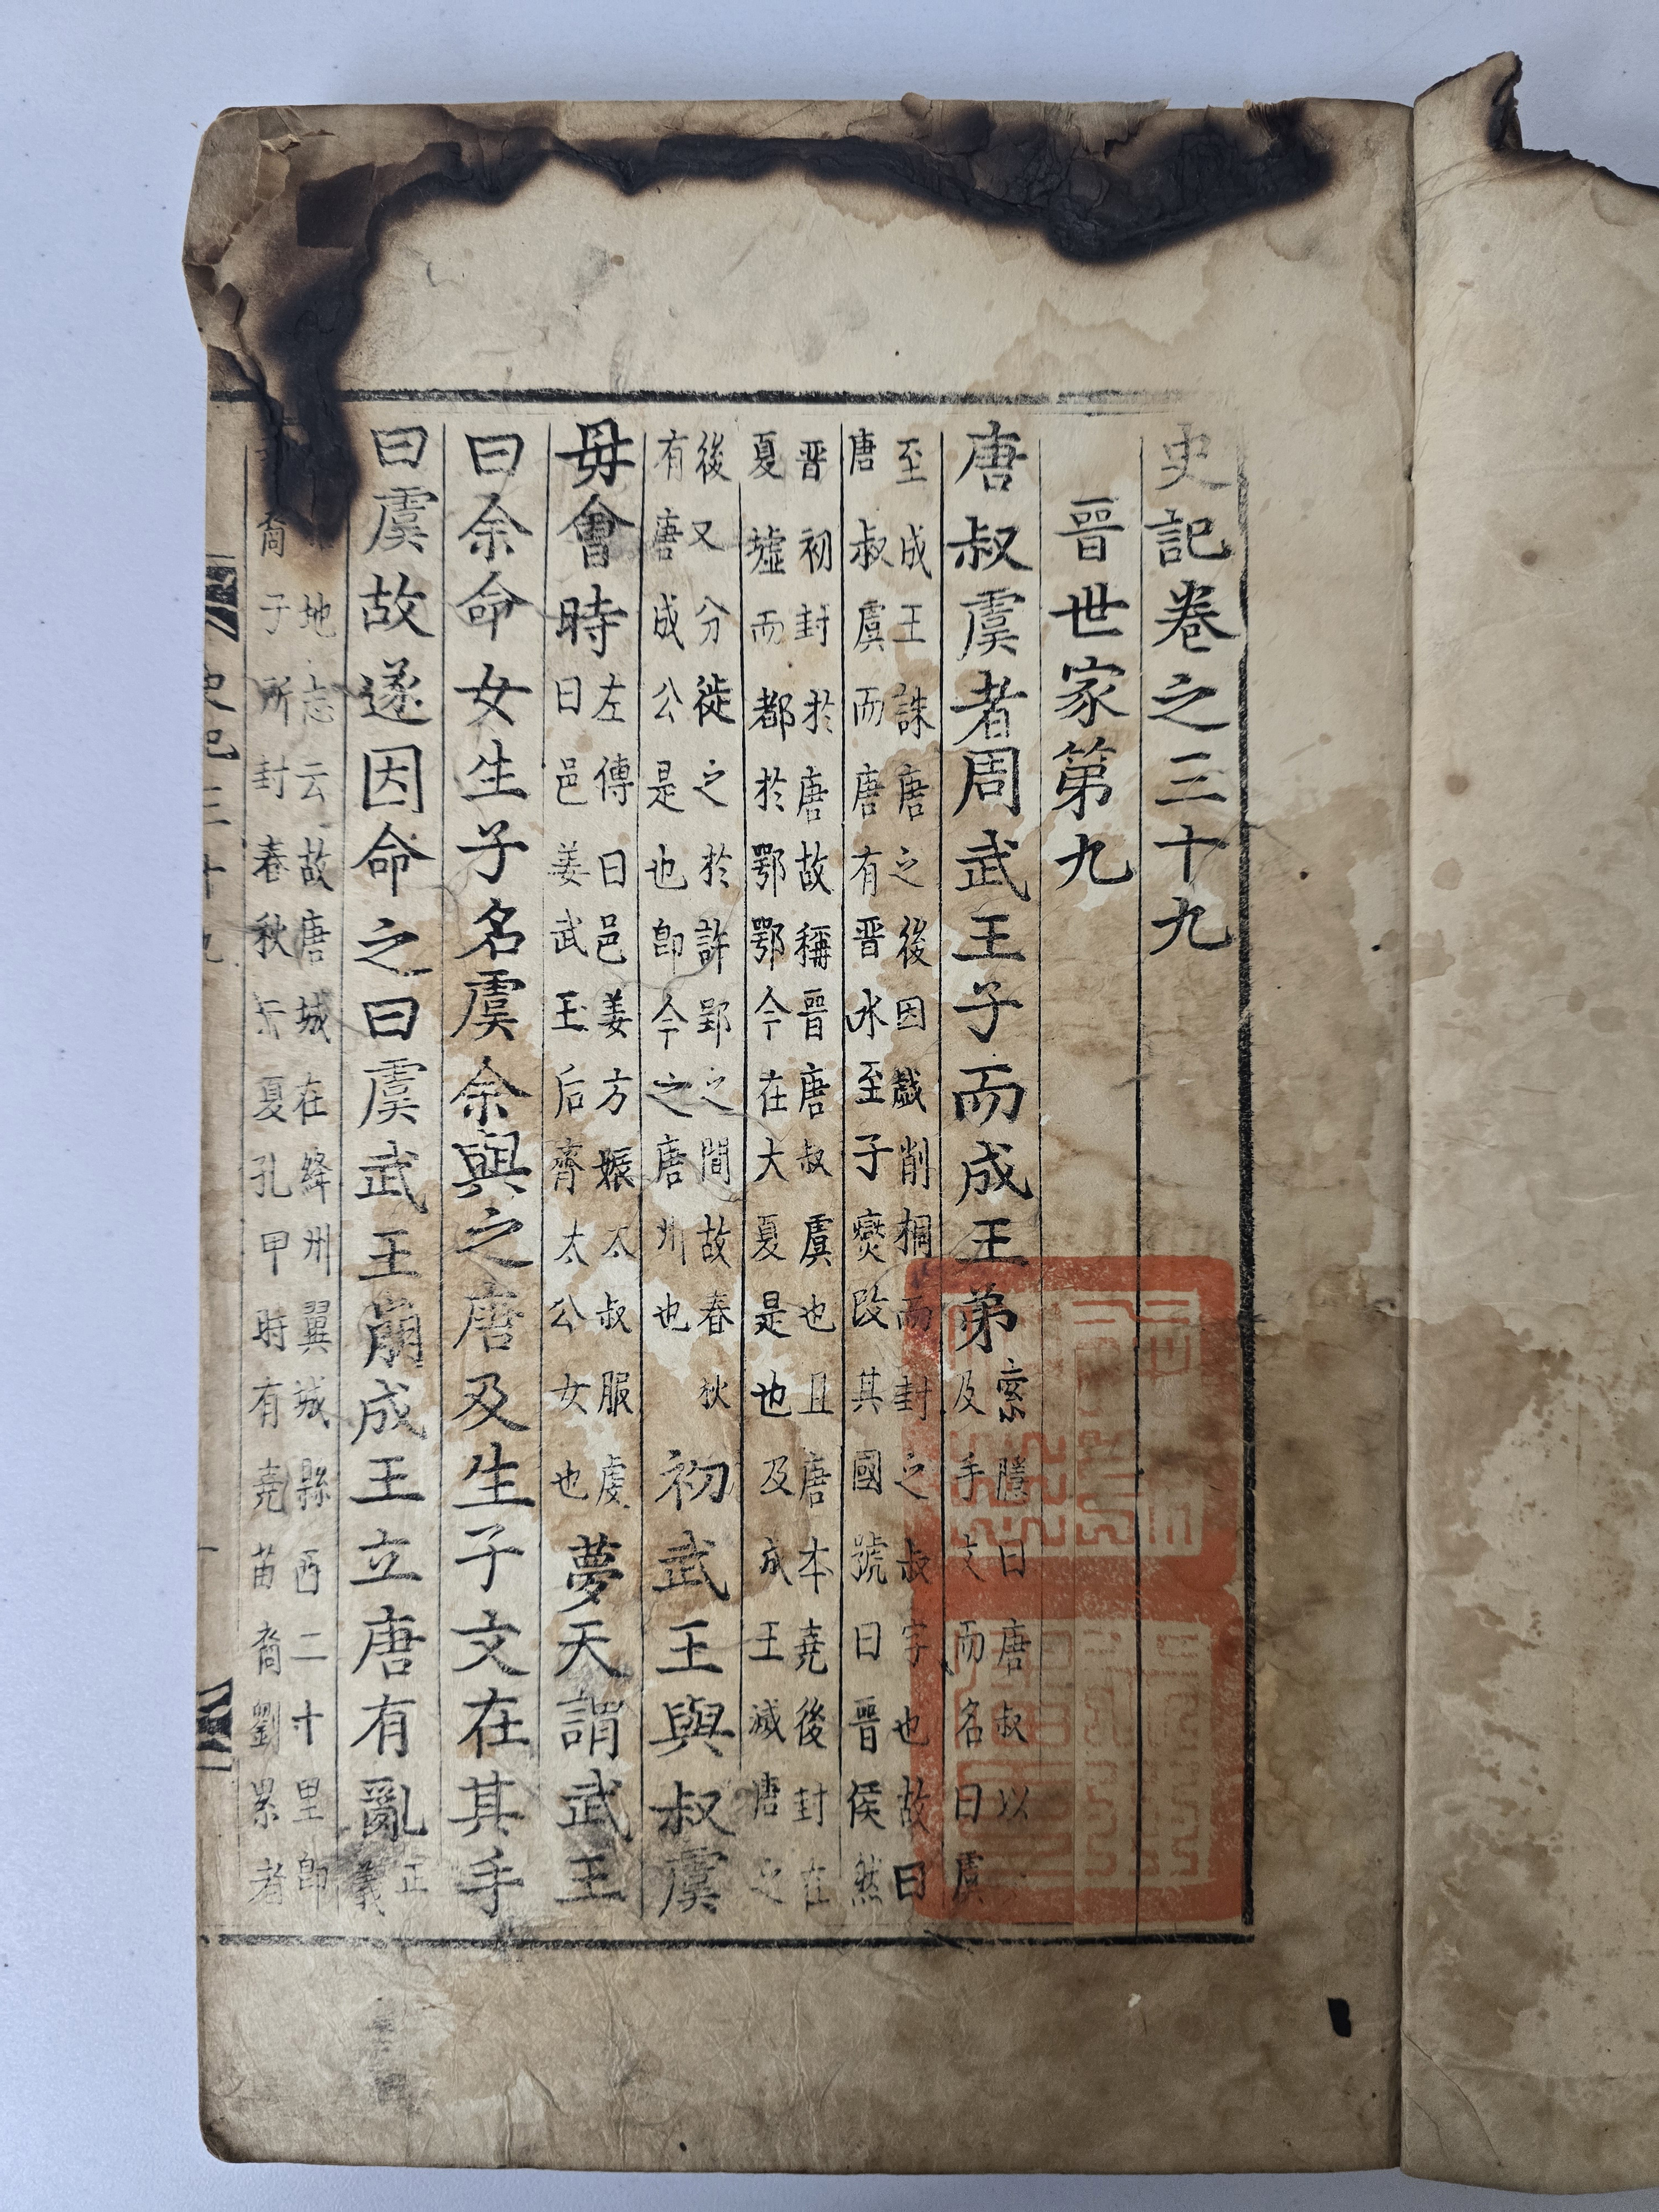 史記卷之三十九
晉世家第九
唐叔虞者周武王子而成王弟
索隱曰唐叔以
及手文而名曰虞
至成王誅唐之後因戲削桐而封之叔字也故曰
唐叔虞而唐有晉水至子燮改其國號曰晉侯然
晉初封於唐故稱晉唐叔虞也且唐本堯後封在
夏墟而都於鄂鄂今在大夏是也及成王滅唐之
後又分徙之於許郢之間故春秋
有唐成公是也卽今之唐州也
初武王與叔虞
毋會時
左傳曰邑姜方娠太叔服虔
曰邑姜武王后齊太公女也
夢天謂武王
曰余命女生子名虞余與之唐及生子文在其手
曰虞故遂因命之曰虞武王崩成王立唐有亂
正
義
地志云故唐城在絳州翼城縣西二十里卽
裔子所封春秋云夏孔甲時有堯苗裔劉累者
史記三十九